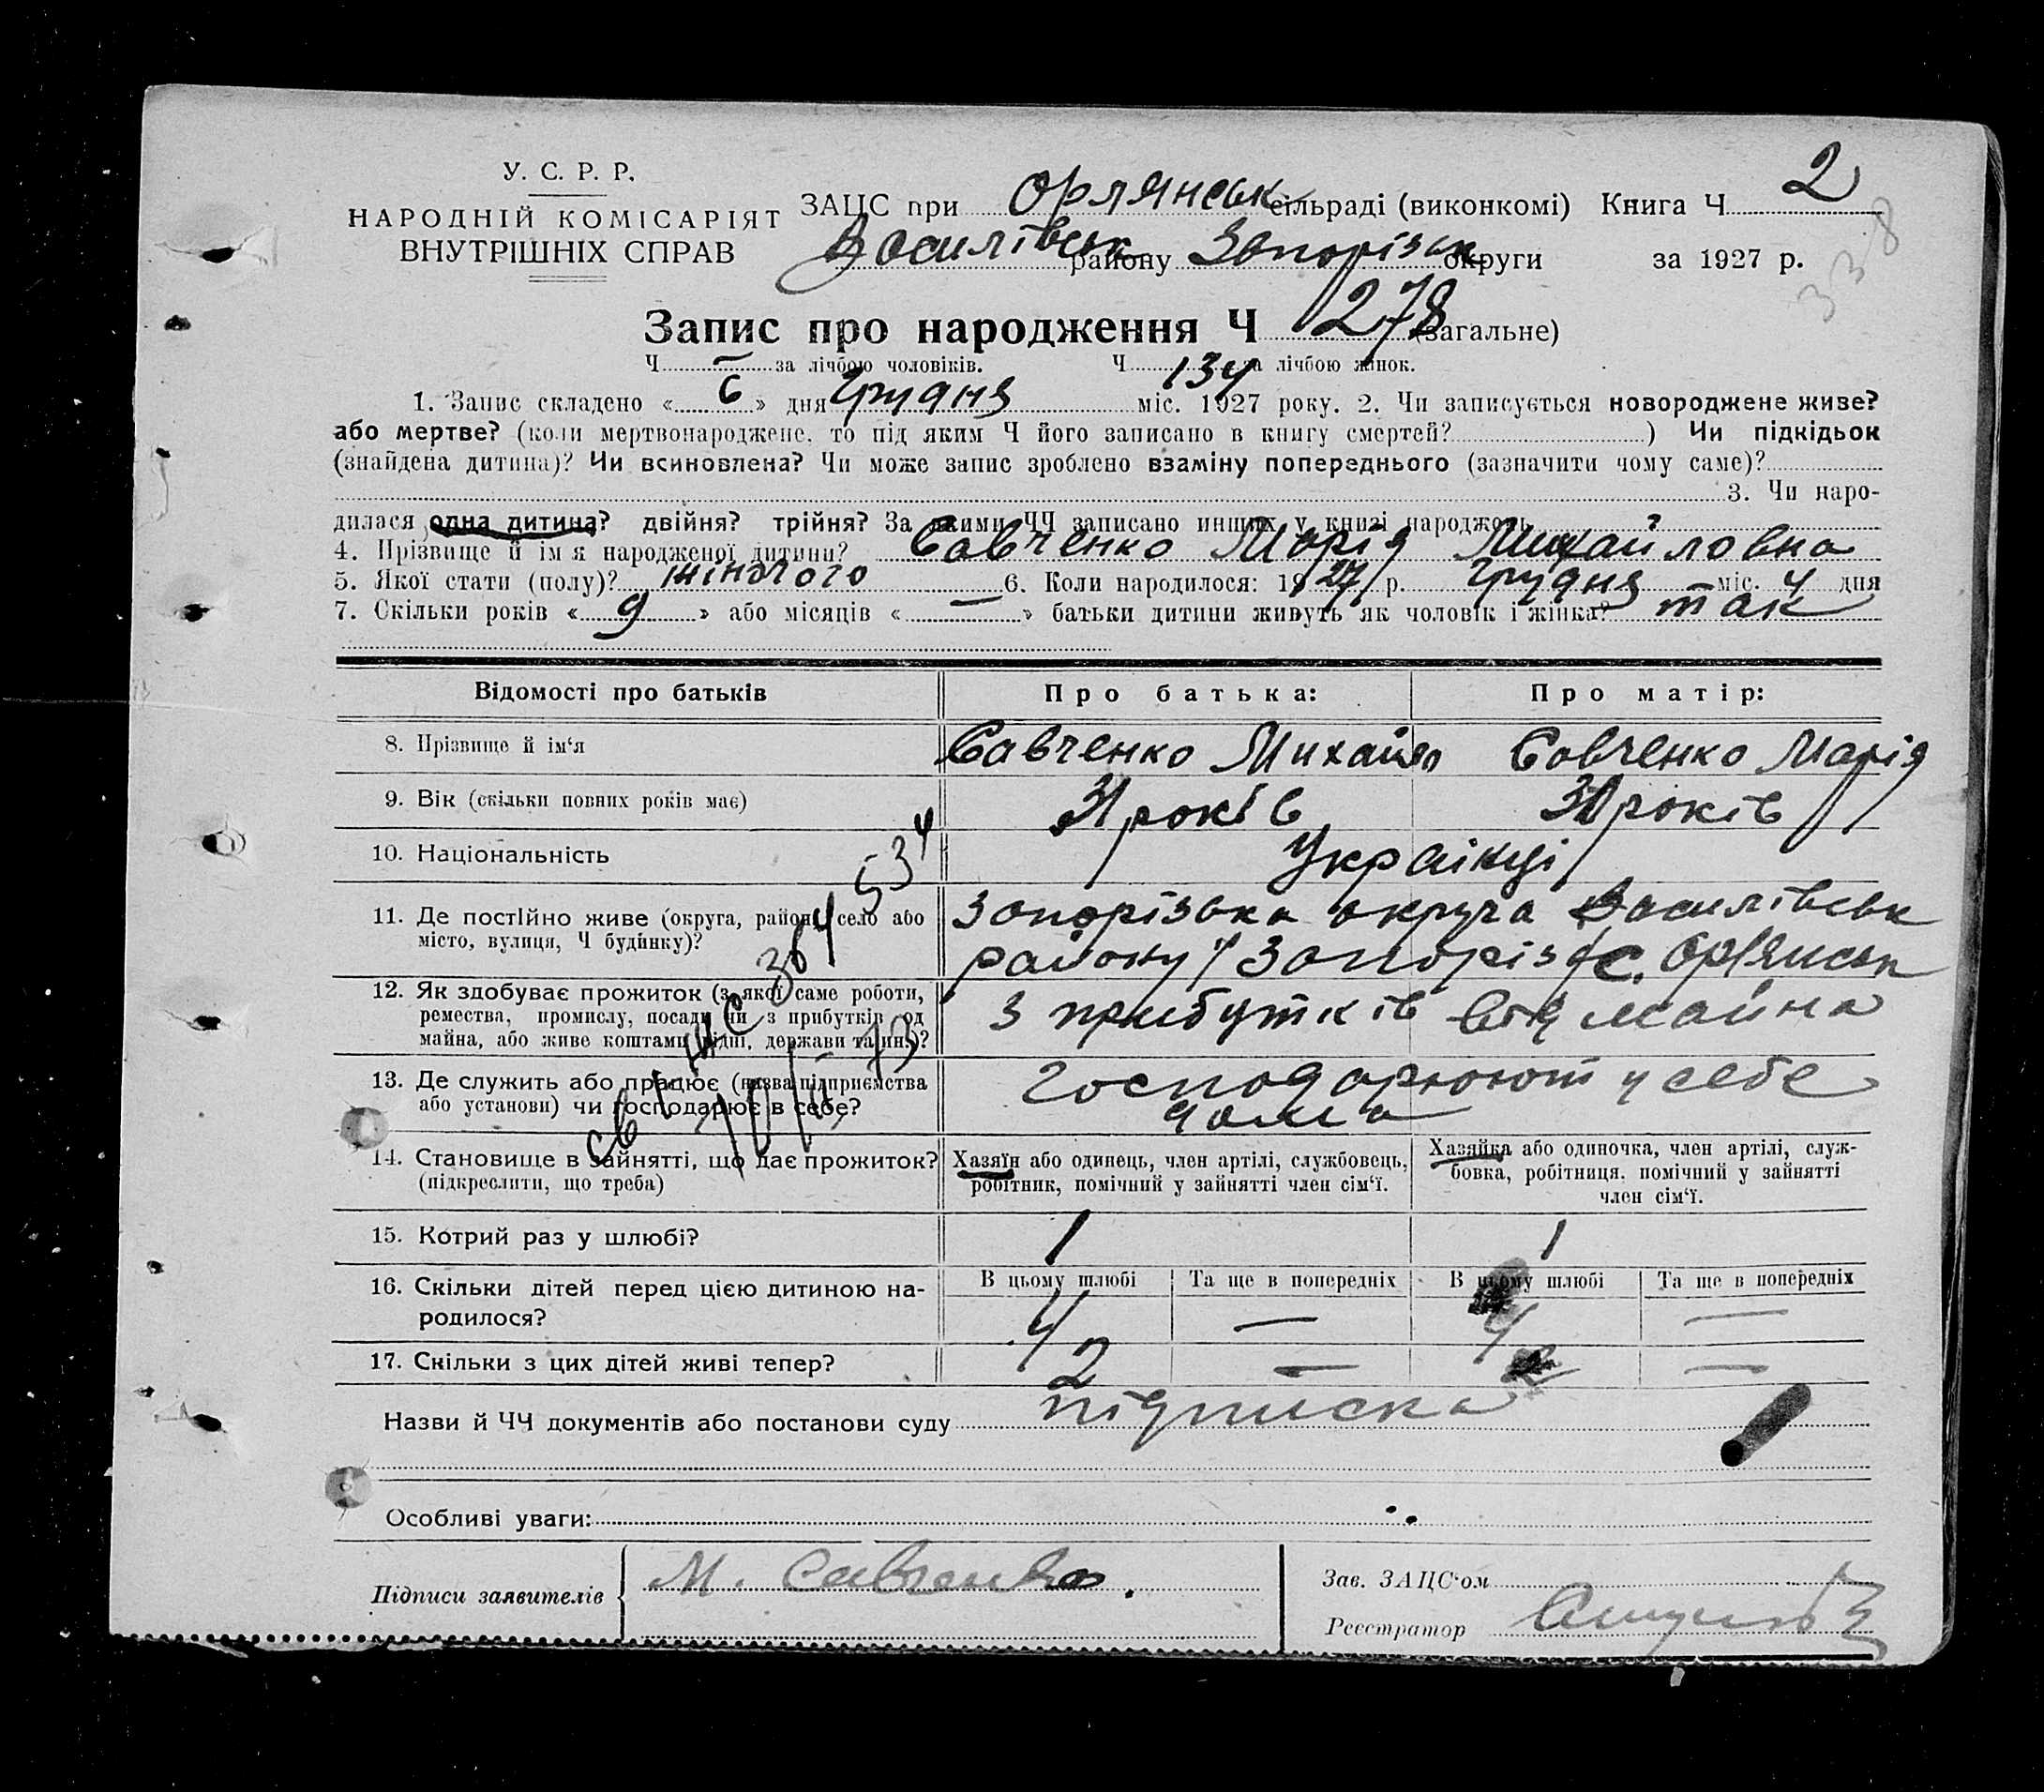 У. С. Р. Р.
НАРОДНІЙ КОМІСАРІЯТ
ВНУТРІШНІХ СПРАВ
ЗАЦС при Орлянськ сільраді (виконкомі) Книга Ч 2
Василівськ району Запорізьк округи за 1927 р.
338
Запис про народження Ч 278 (загальне)
Ч — за лічбою чоловіків. Ч 134 за лічбою жінок.
1. Запис складено « 6 » дня Грудня міс. 1927 року. 2. Чи записується новороджене живе?
або мертве? (коли мертвонароджене, то під яким Ч його записано в книгу смертей? ) Чи підкідьок
(знайдена дитина)? Чи всиновлена? Чи може запис зроблено взаміну попереднього (зазначити чому саме)?
3. Чи наро-
дилася одна дитина? двійня? трійня? За якими ЧЧ записано инших у книзі народжень
4. Прізвище й ім я народженої дитини? Савченко Марія Михайловна
5. Якої стати (полу)? жіночого 6. Коли народилося: 1927 р. Грудня міс. 4 дня
7. Скільки років « 9 » або місяців « — » батьки дитини живуть як чоловік і жінка? так
Відомості про батьків Про батька: Про матір:
8. Прізвище й ім'я Савченко Михайло Савченко Марія
9. Вік (скільки повних років має) 31 років 30 років
10. Національність Українці
11. Де постійно живе (округа, район, село або Запорізька округа Василівськ
місто, вулиця, Ч будинку)? району с. Орлянськ
12. Як здобуває прожиток (з якої саме роботи,
ремества, промислу, посади чи з прибутків од
майна, або живе коштами рідні, держави та ин.)? З прибутків від майна
13. Де служить або працює (назва підприємства Господарюют у себе
або установи) чи господарює в себе? дома
14. Становище в зайнятті, що дає прожиток? Хазяїн або одинець, член артілі, службовець, Хазяйка або одиночка, член артілі, служ-
(підкреслити, що треба) робітник, помічний у зайнятті член сім'ї. бовка, робітниця, помічний у зайнятті
член сім'ї.
15. Котрий раз у шлюбі? 1 1
16. Скільки дітей перед цією дитиною на- В цьому шлюбі Та ще в попередніх В цьому шлюбі Та ще в попередніх
родилося? 4 — 4 —
17. Скільки з цих дітей живі тепер? 2 — 2 —
Назви й ЧЧ документів або постанови суду підписка
Особливі уваги:
Підписи заявителів М. Савченко.
Зав. ЗАЦС'ом
Реєстратор